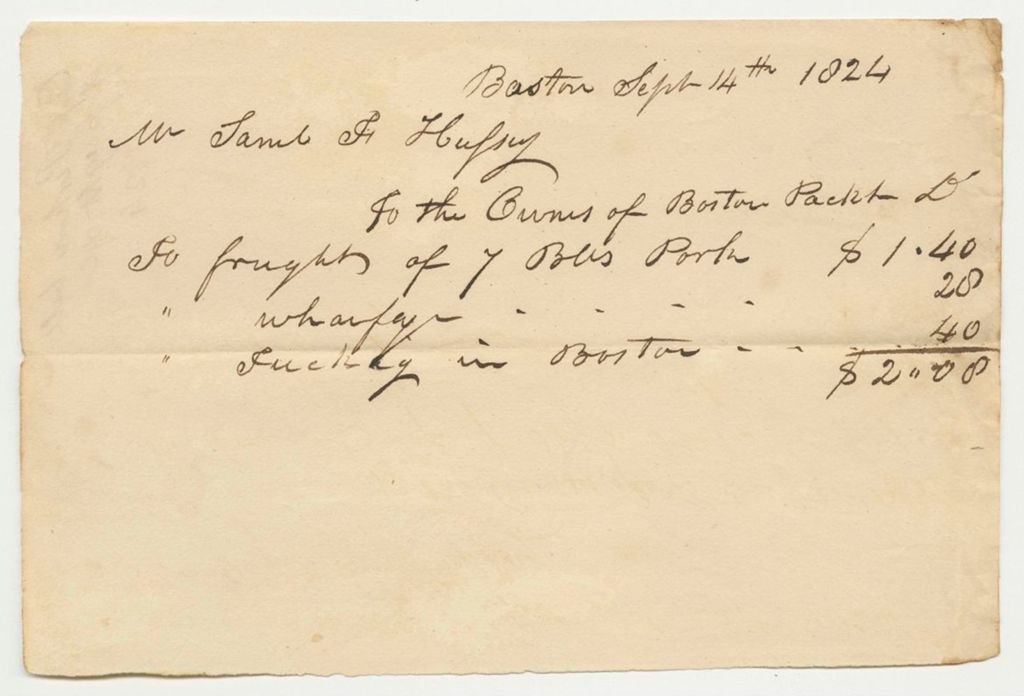 Boston Sept 14th 1824
Mr Saml F Hussey
To the Owners of Boston Packt Dr
To freught of 7 Bbls Pork $ 1.40
" wharfage . . . . 28
" Truckig in Boston - - . 40
$ 2"08